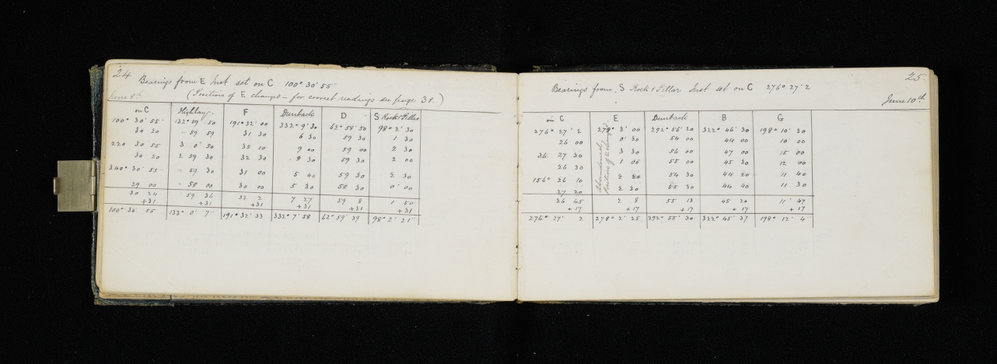 24 Bearings from E Inst set on C 100° 30' 55"
(Position of E changed - for correct readings see page 38.)
June 8th
on C F D S Rock & Pillar
100° 30' 55" 132° 59' 50 191° 32' 00 332° 9' 30 62° 58' 50 98° 2' 30
30 20 59 59 31 30 6 30 59 30 1 30
220 30 55 3 0 30 35 10 9 00 59 00 2 30
30 20 2 59 30 32 30 8 30 59 30 2 00
340° 30' 55 59 30 31 00 5 40 59 30 2 30
29 00 58 00 30 00 5 30 58 30 0' 00
30 24 59 36 32 2 7 27 59 8 1 50
+31 +31 +31 +31 +31
100° 30' 55 133° 0' 7" 191° 32' 33 332° 7' 58 62° 59' 39 98° 2' 21"
25
Bearings from S Rock & Pillar Inst set on C 276° 27' 2
June 10th
on C E B G
276° 27' 2 278° 3' 00 292° 55' 30 322° 46' 30 198° 10' 30
26 00 0' 30 54 00 44 00 10 00
36 27 30 3 30 56 00 47 00 15 00
26 30 1 00 55 00 45 30 12 00
156° 26 10 2 20 54 30 44 20 11 40
27 20 2 30 55 30 44 40 11 30
26 45 2 8 55 13 45 20 11 47
+17 +17 +17 +17
276° 27' 2 278° 2' 25 292° 55' 30 322° 45' 37 198° 12' 4